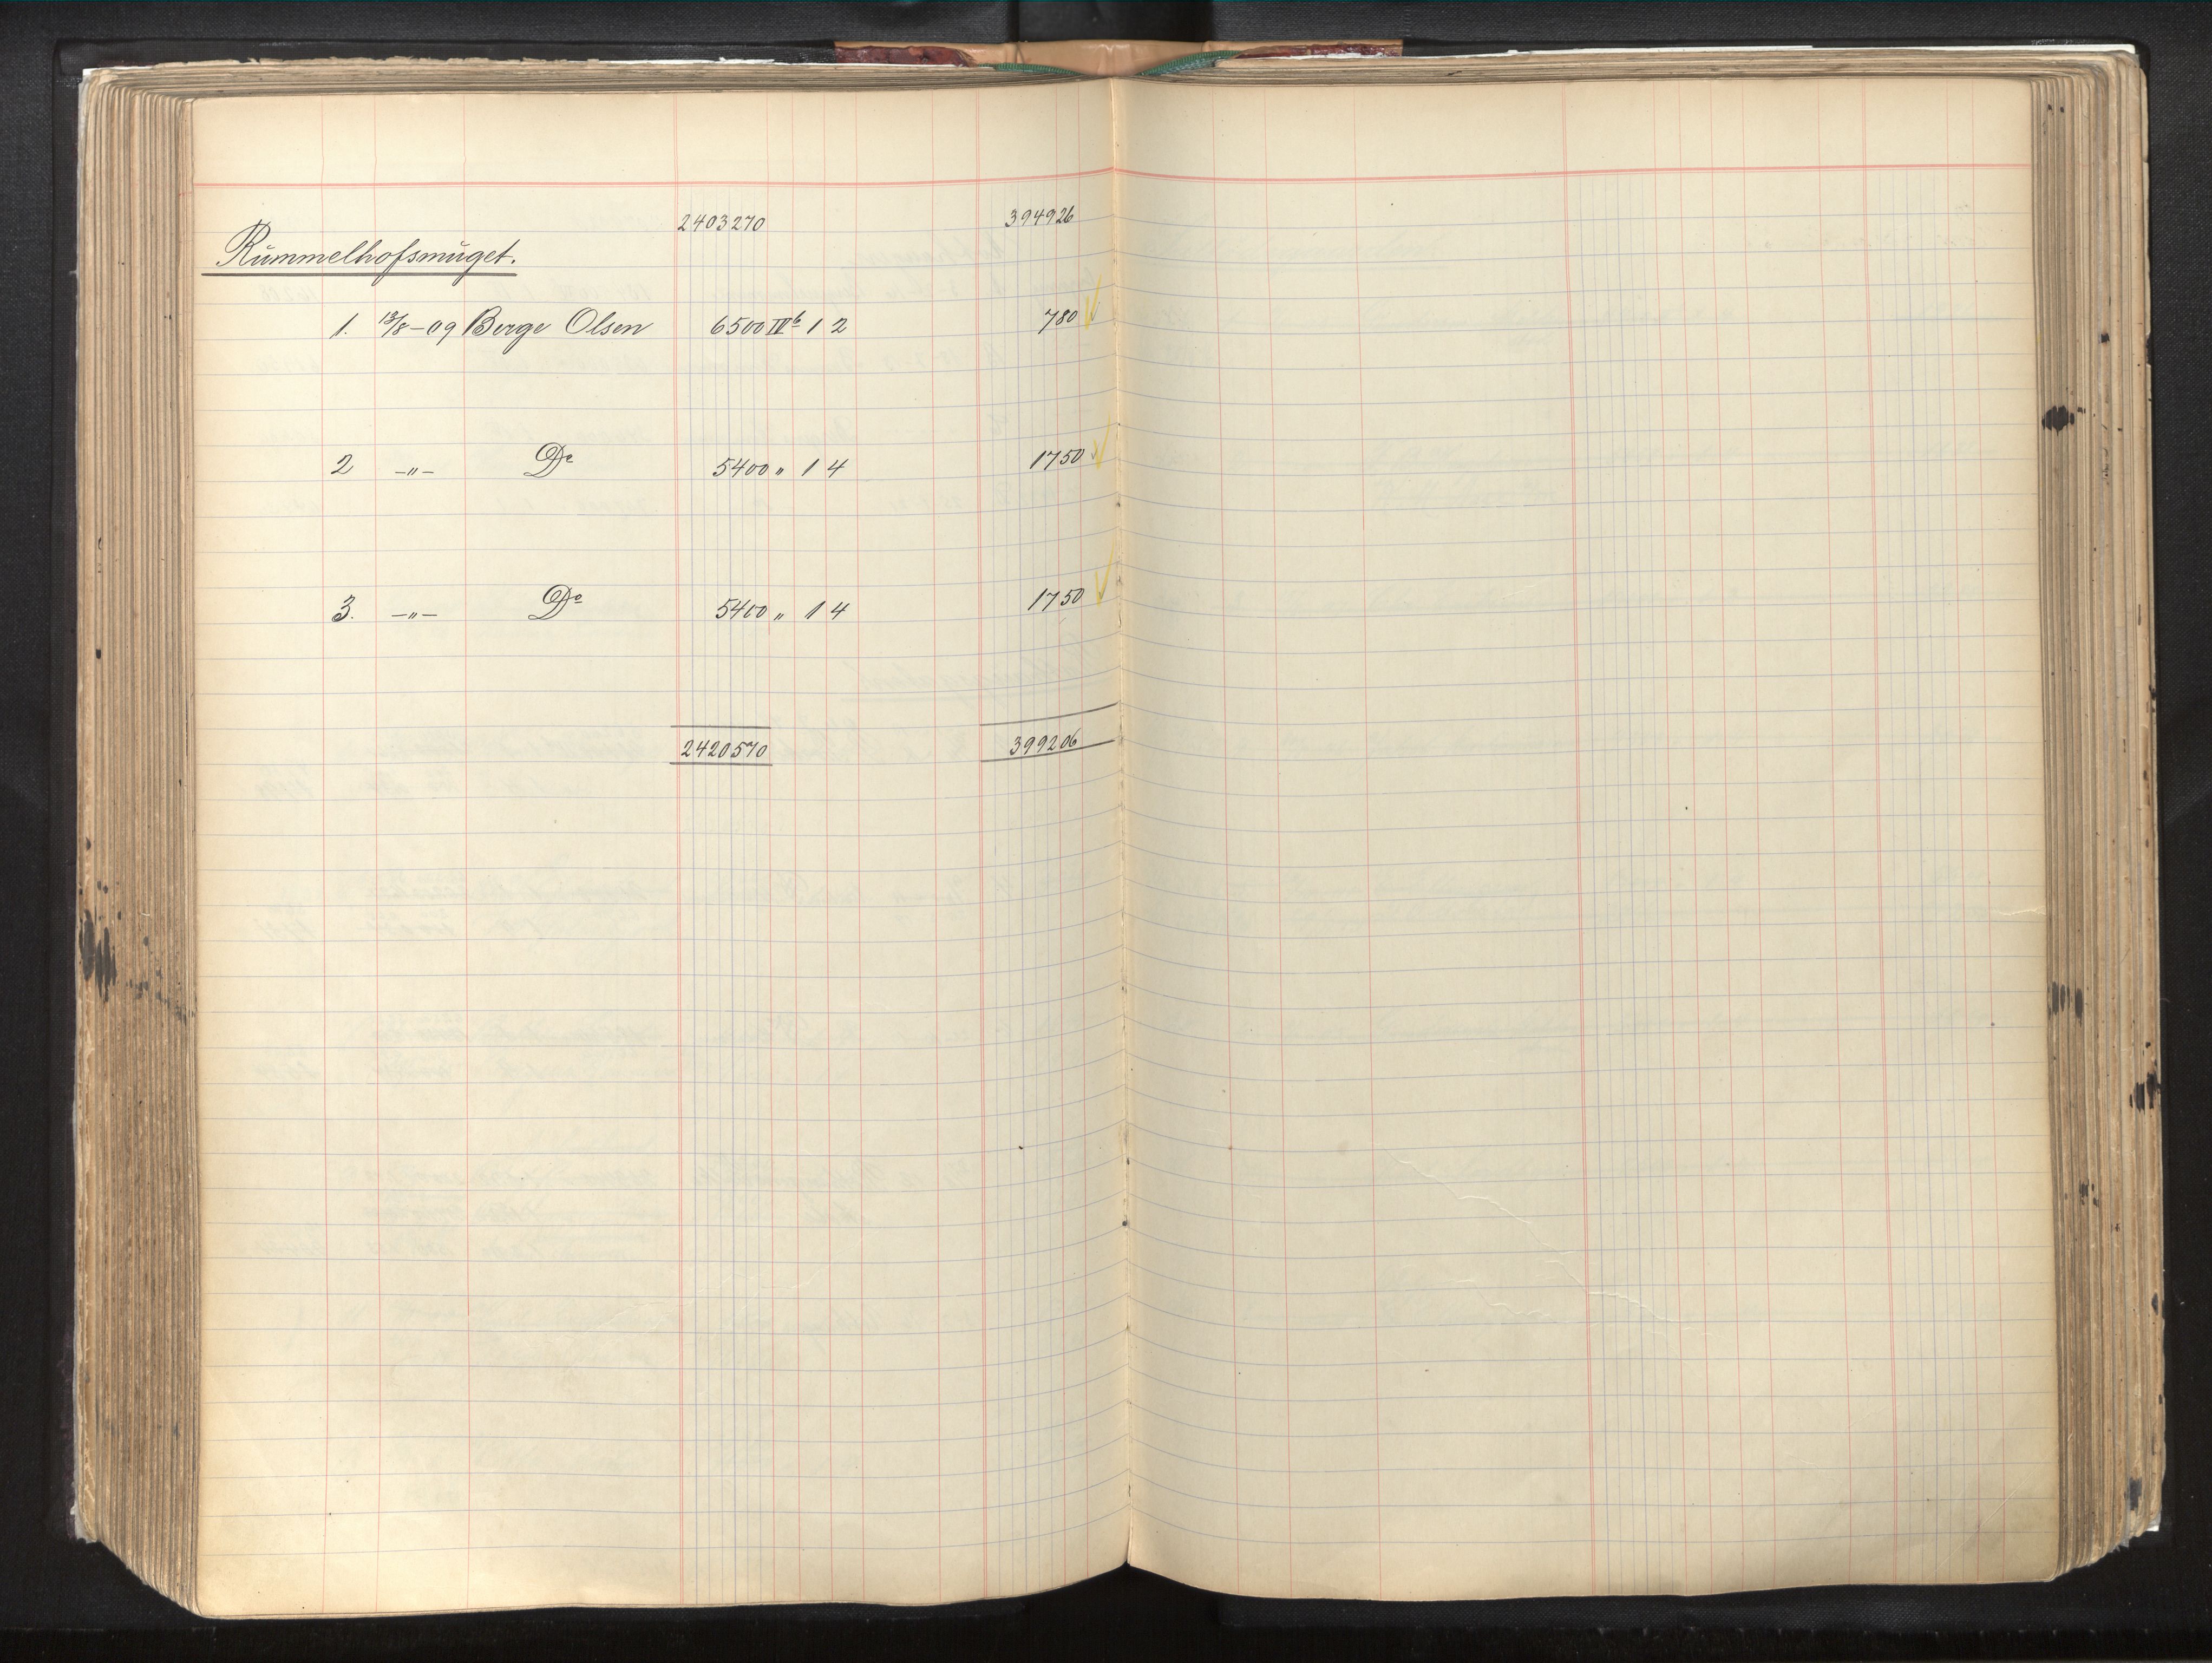 2403270 394926
Rummelhofsmuget.
1. 13/8-09 Berge Olsen 6500 IV b 1 2 780
2 -„- Do 5400 „ 1 4 1750
3. -„- Do 5400 „ 1 4 1750
2420570 399206